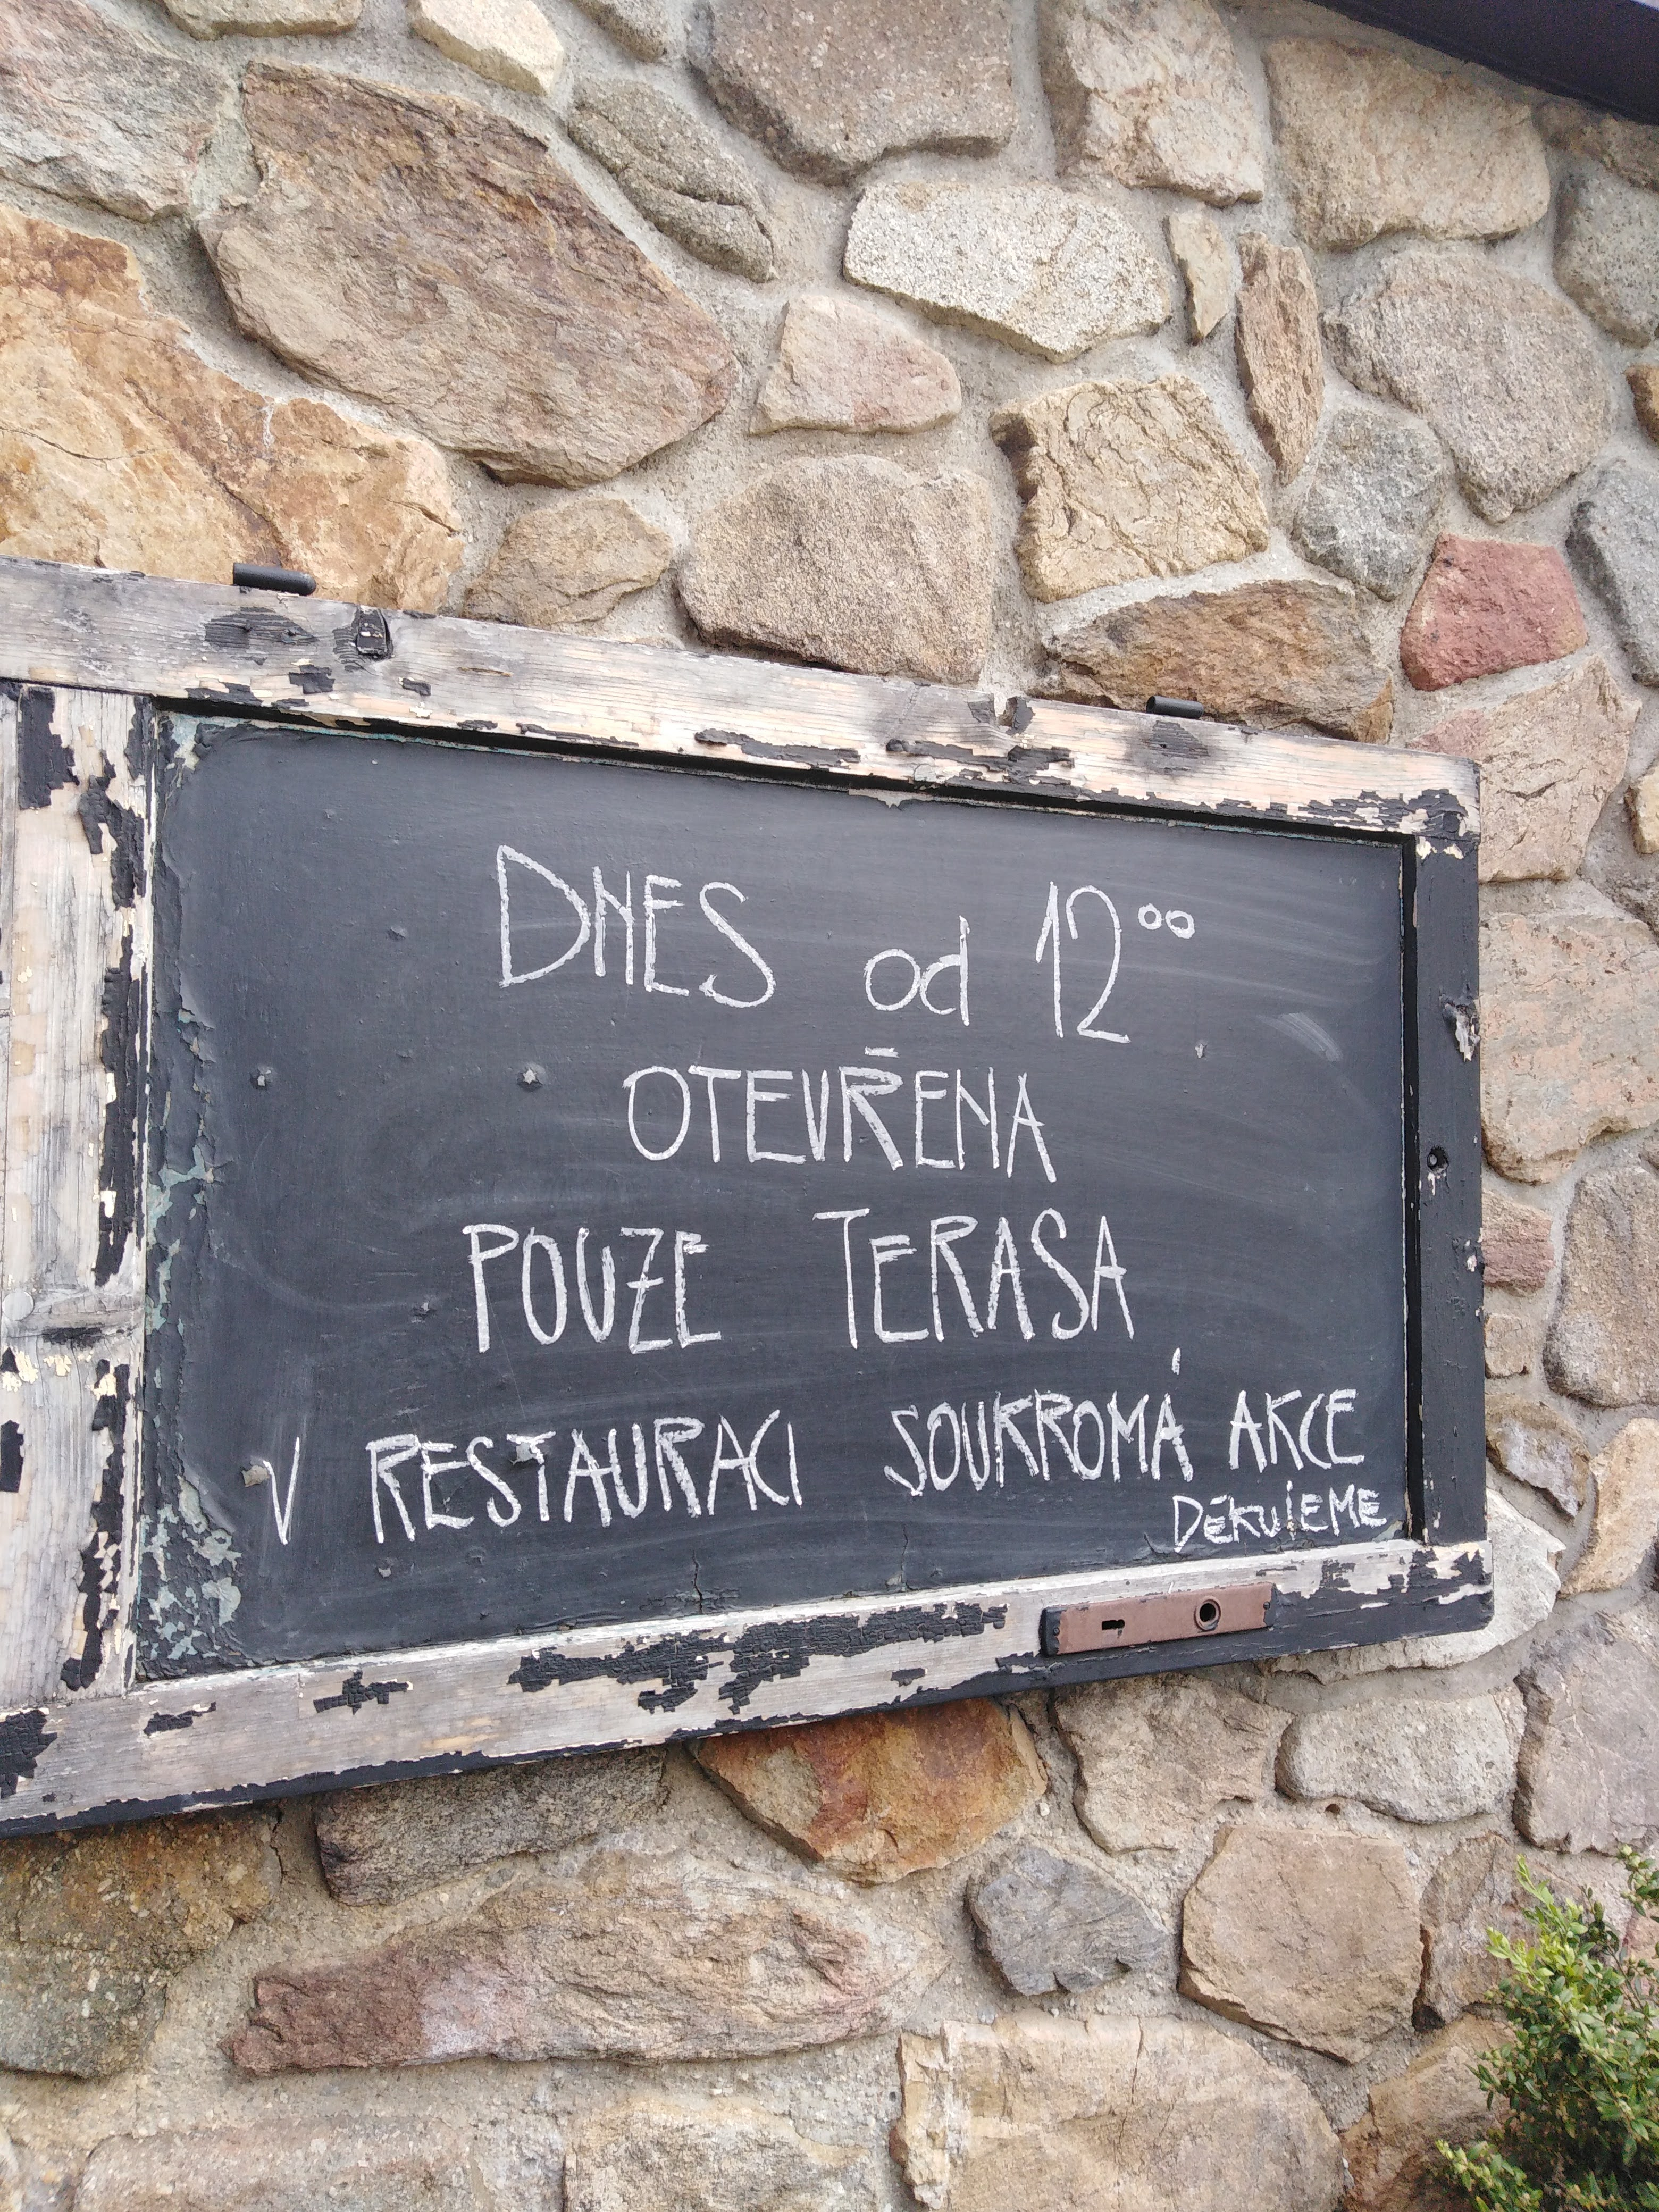 DNES od 12⁰⁰
OTEVŘENA
POUZE TERASA
V RESTAURACI SOUKROMÁ AKCE
DĚKUJEME